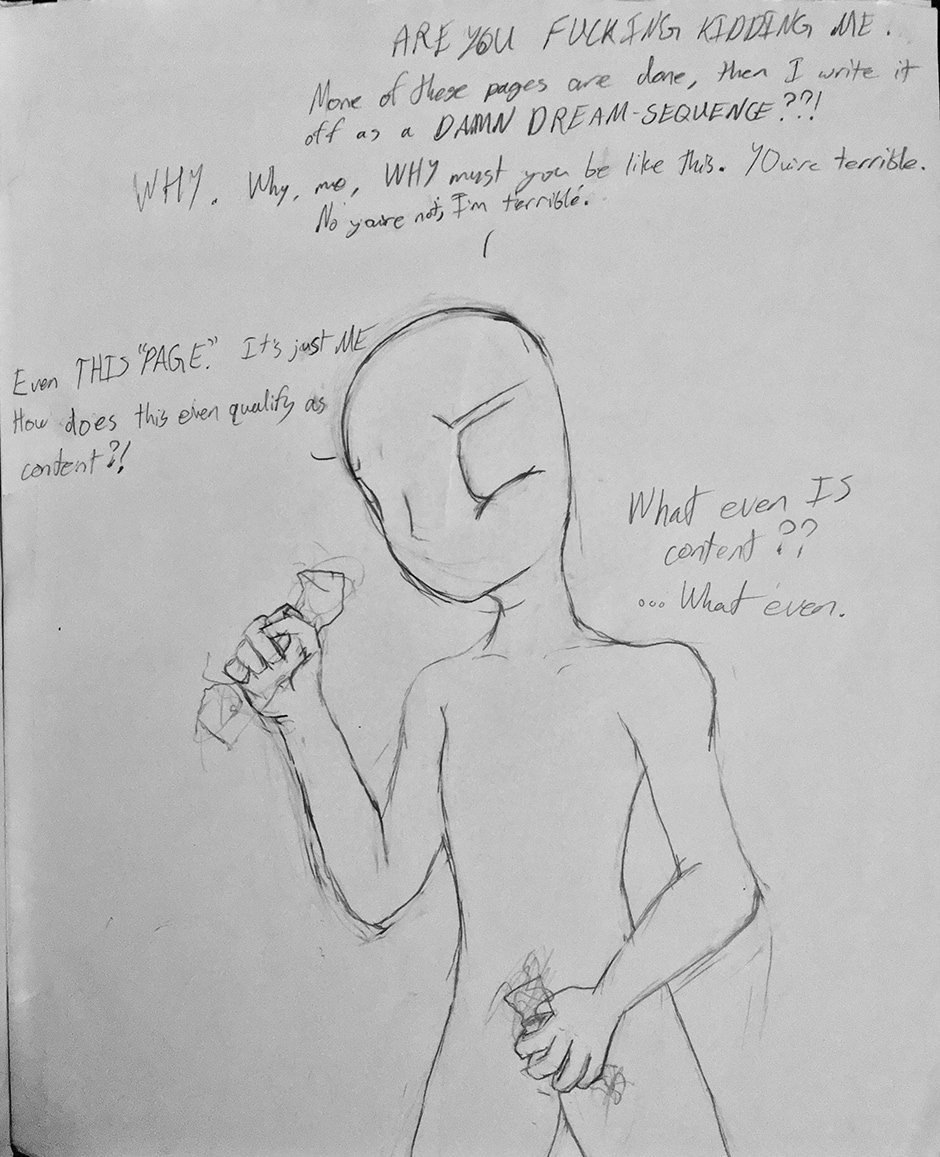 ARE YOU FUCKING KIDDING ME.
None of these pages are done, then I write it
off as a DAMN DREAM-SEQUENCE??!
WHY. Why, me, WHY must you be like this. YOu're terrible.
No you're not, I'm terrible.
Even THIS "PAGE." It's just ME
How does this even qualify as
content?!
What even IS
content??
... What even.